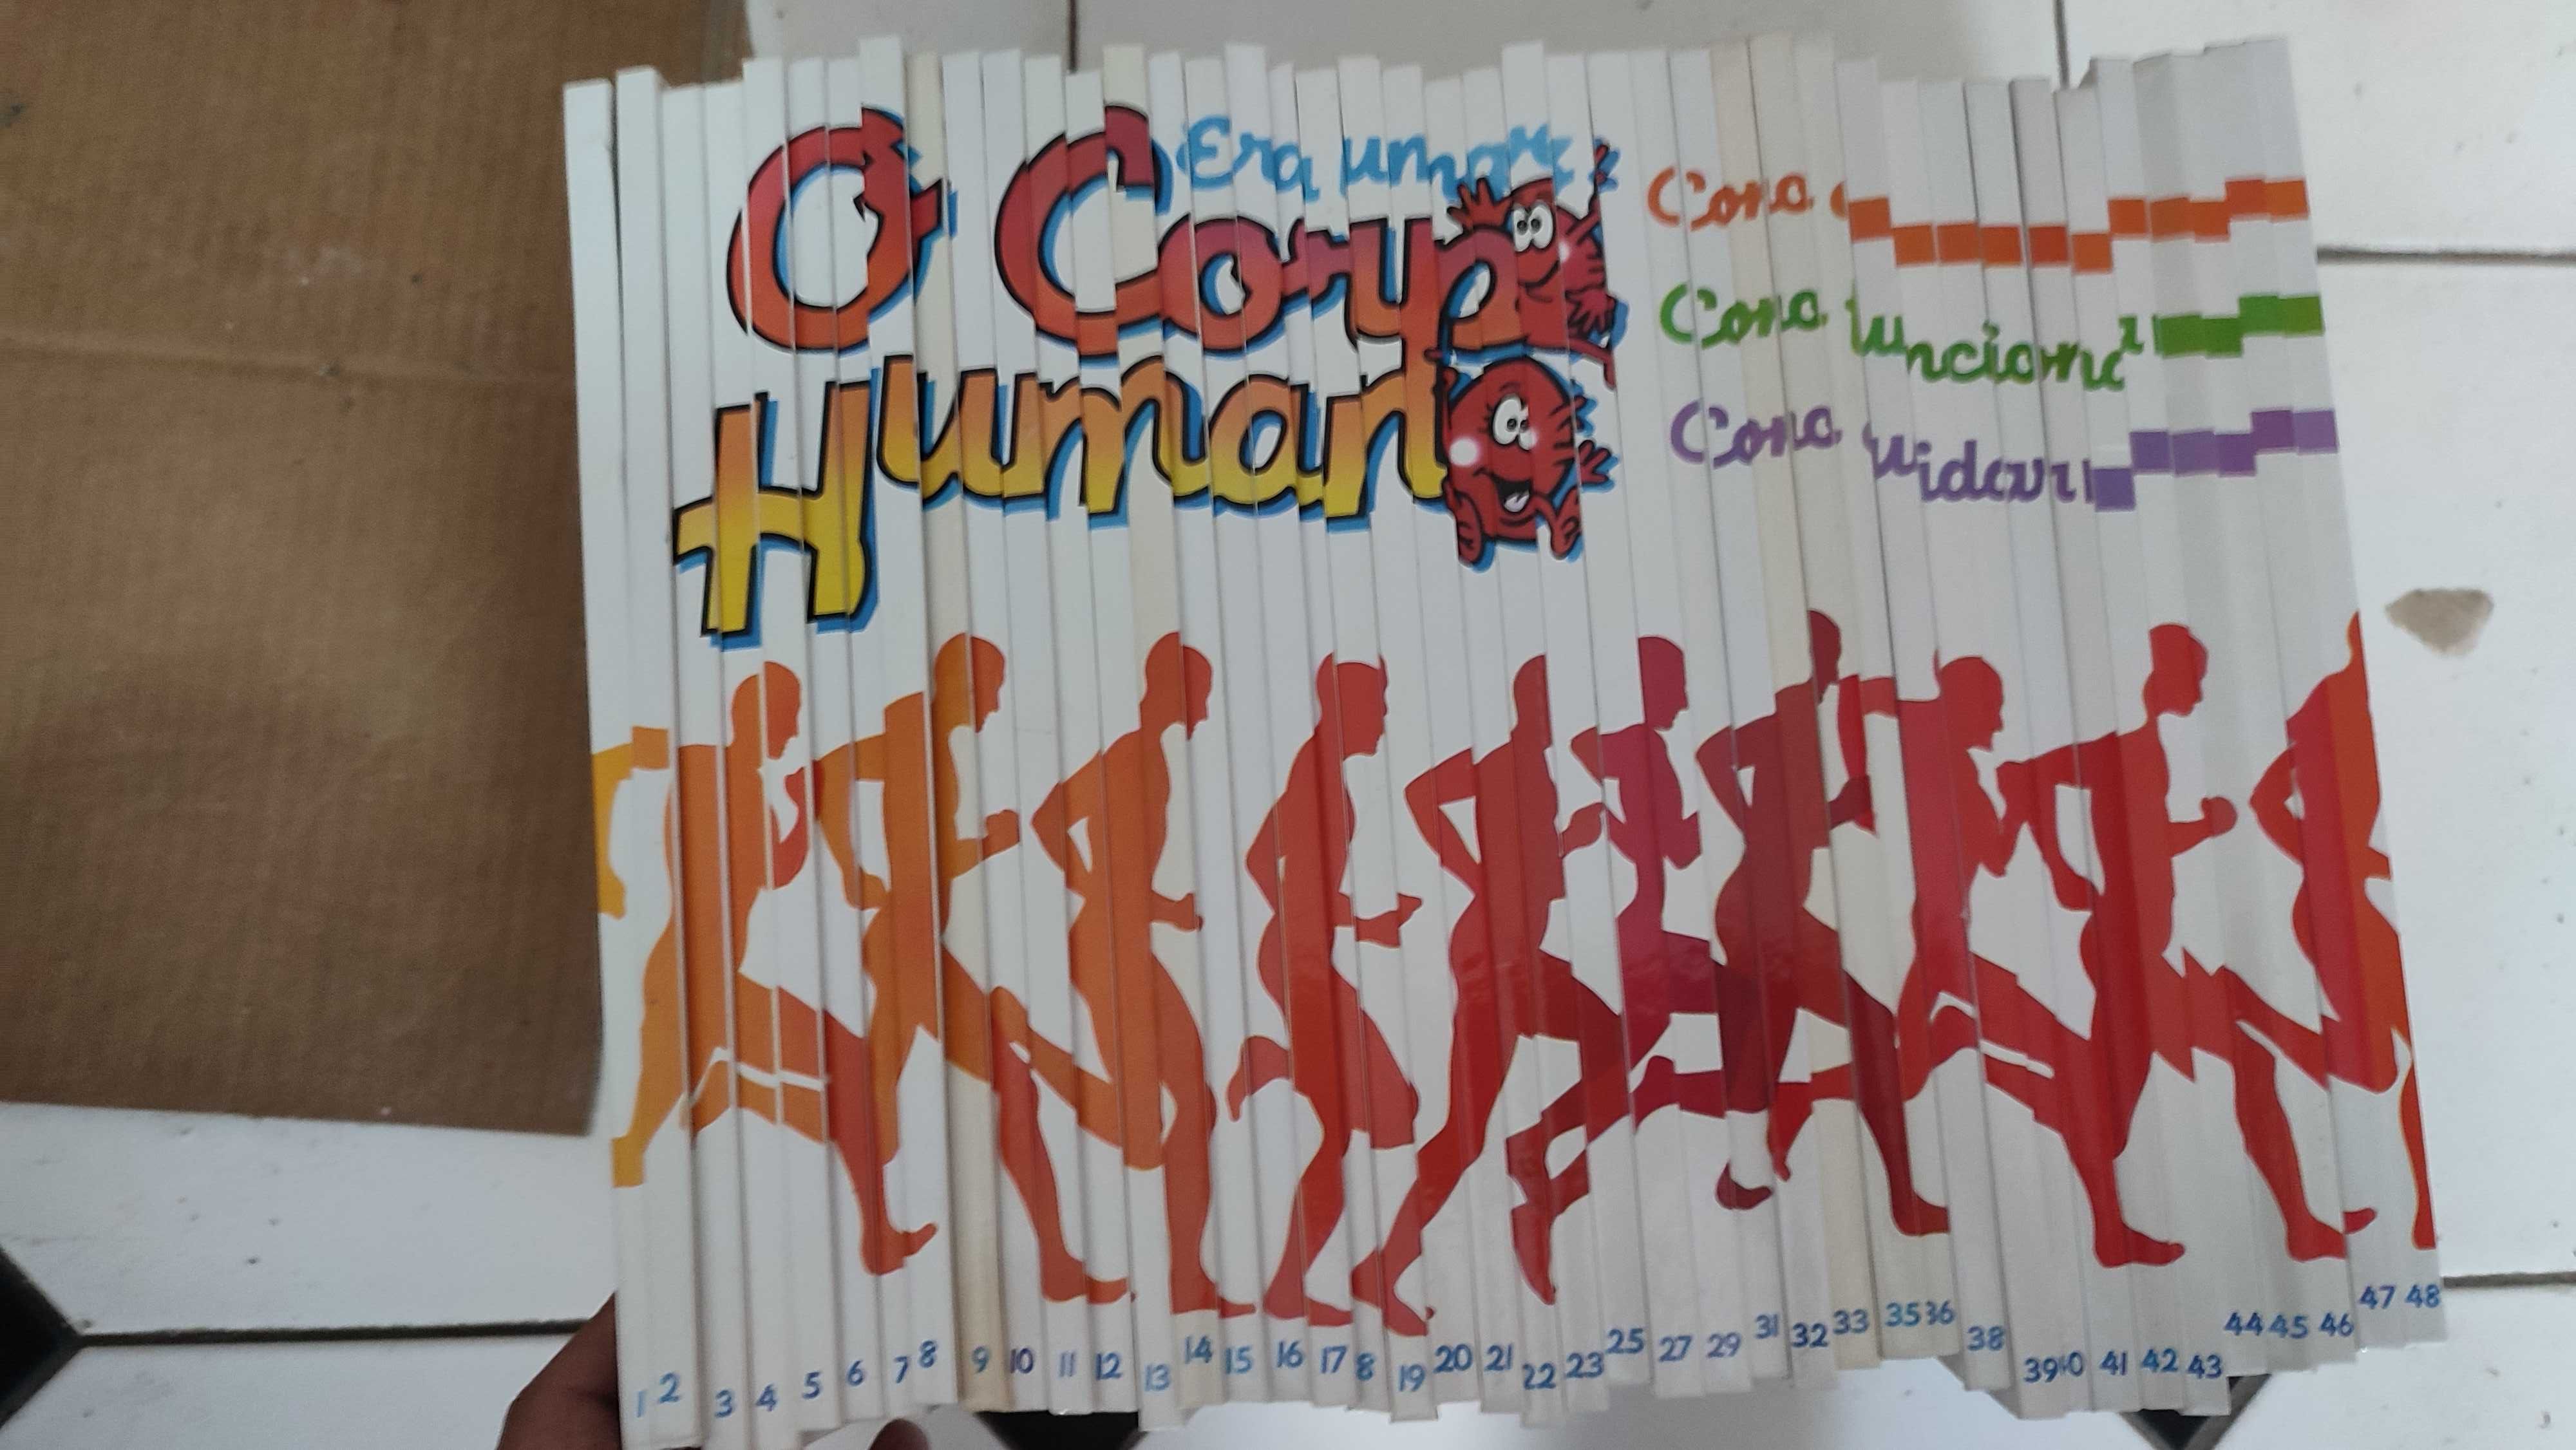 Era uma
O Corpo
Humano
Como
Como funciona
Como cuidar
1 2 3 4 5 6 7 8 9 10 11 12 13 14 15 16 17 8 19 20 21 22 23 25 27 29 31 32 33 35 36 38 39 40 41 42 43 44 45 46 47 48